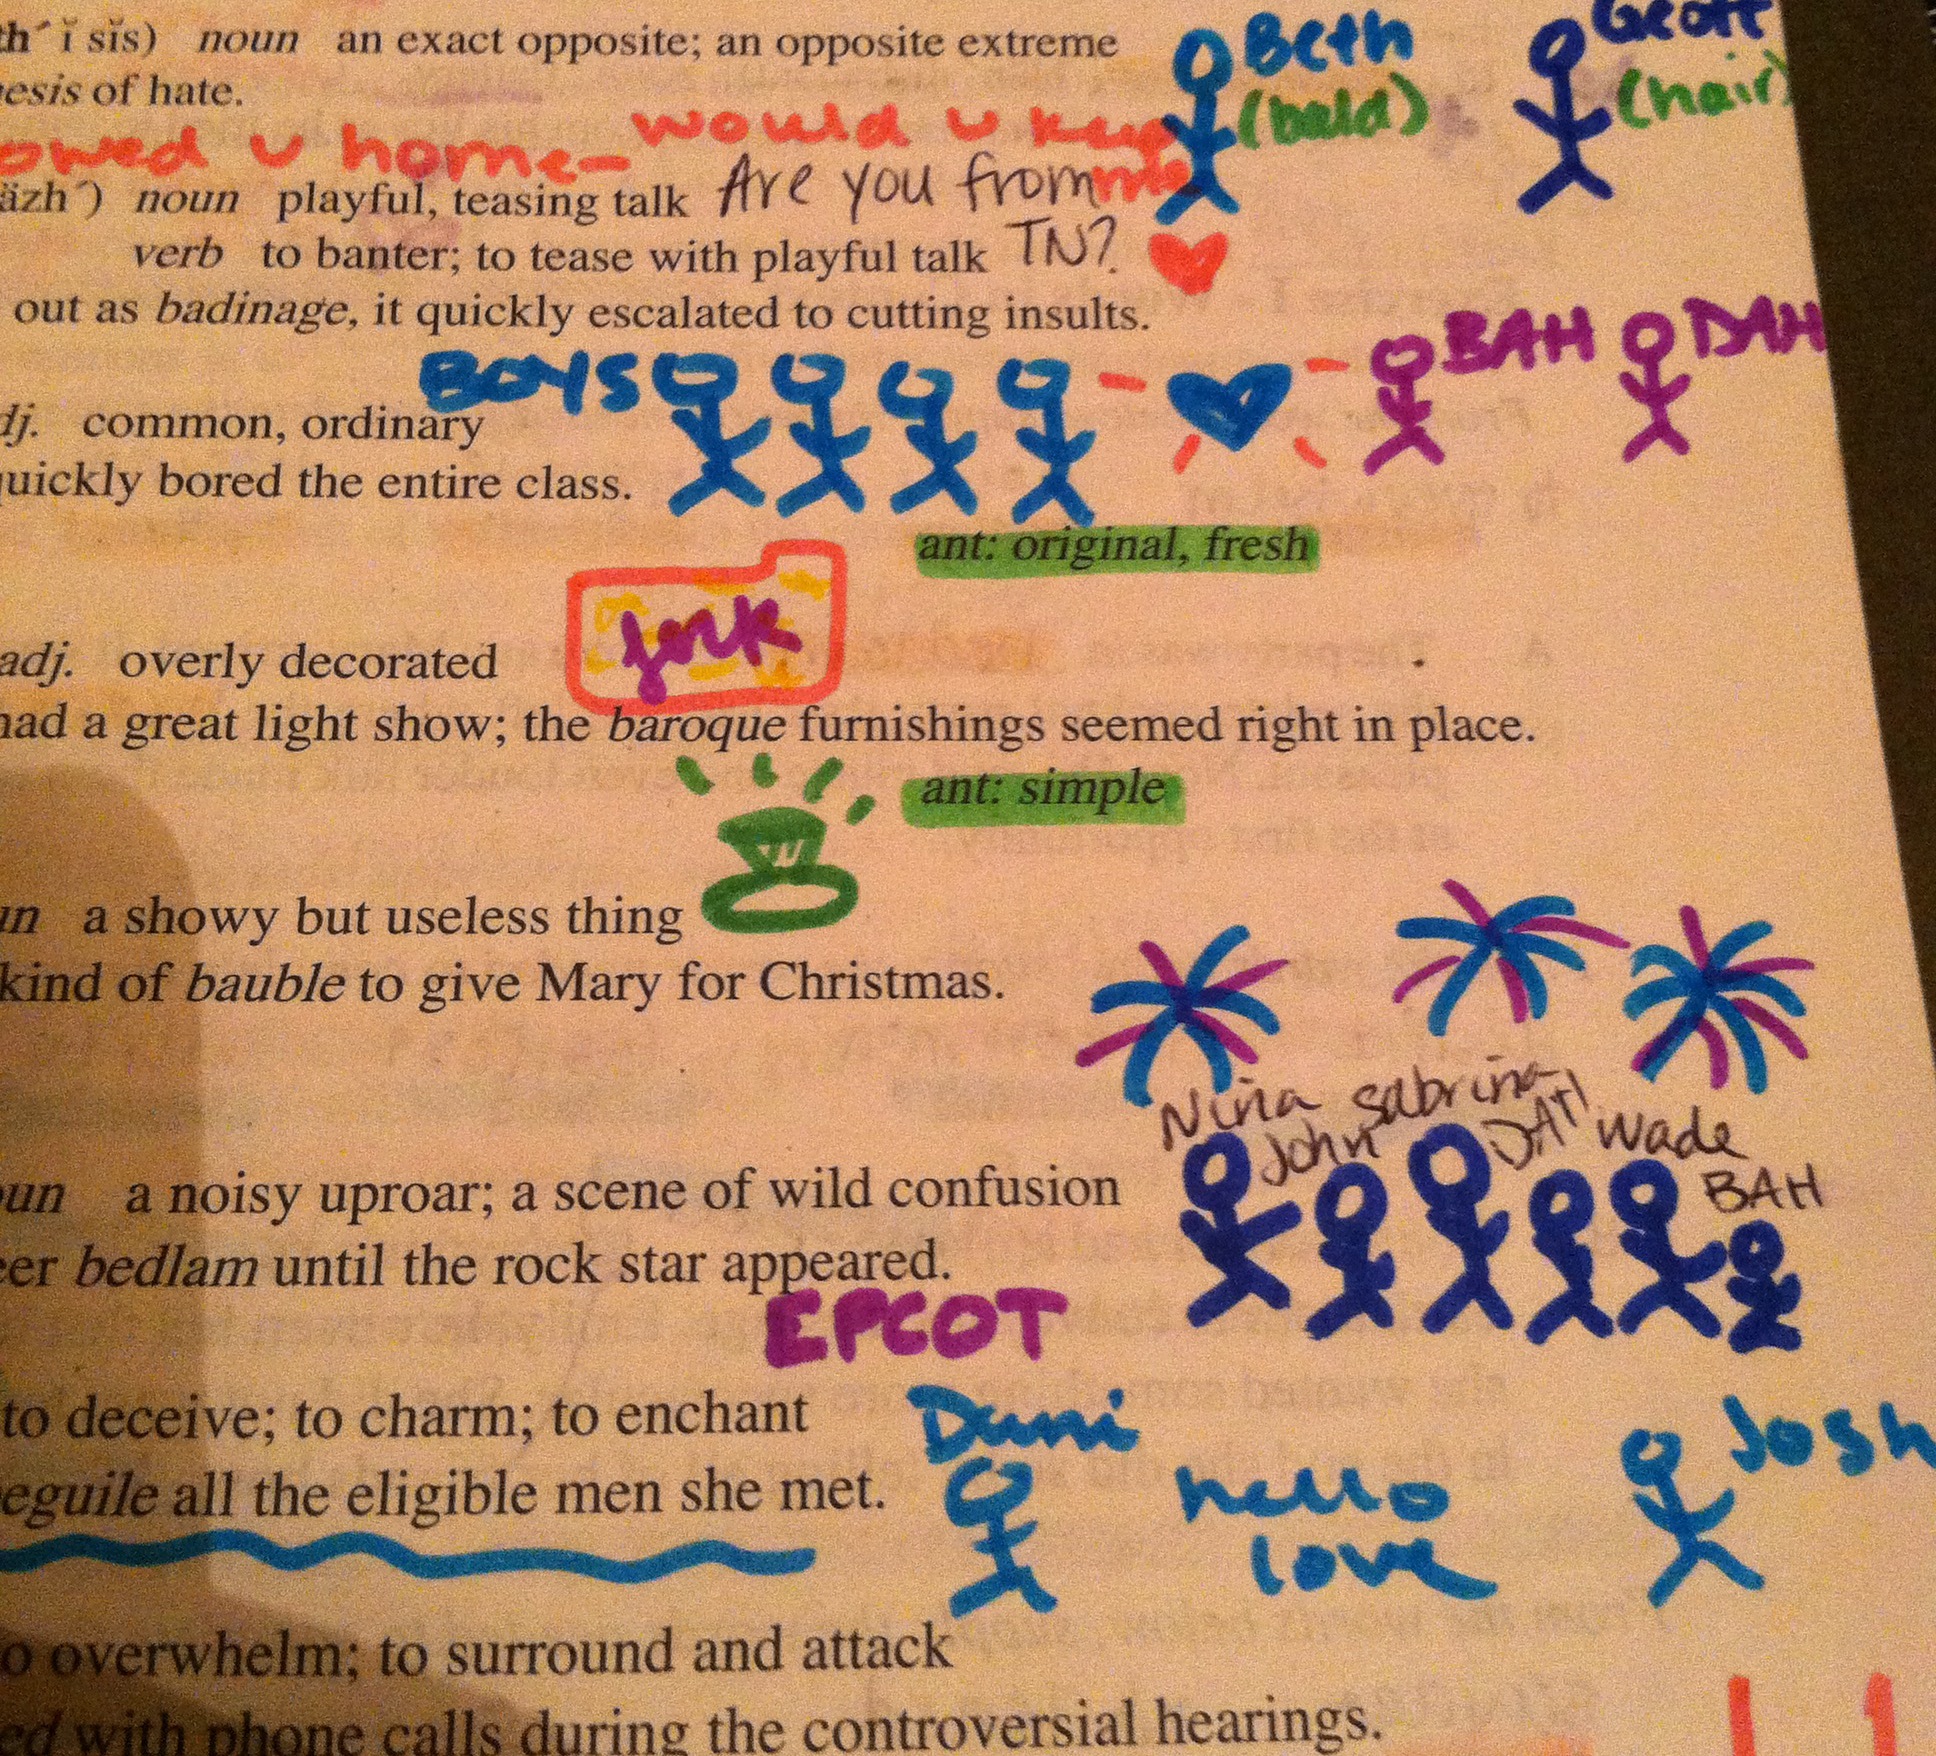 th´ ĭ sĭs) noun an exact opposite; an opposite extreme
Beth
Geoff
esis of hate.
(bald)
(hair)
owed u home- would u keep me
äzh´) noun playful, teasing talk Are you from
verb to banter; to tease with playful talk TN?
out as badinage, it quickly escalated to cutting insults.
BOYS
BAH
DAH
dj. common, ordinary
uickly bored the entire class.
ant: original, fresh
adj. overly decorated
had a great light show; the baroque furnishings seemed right in place.
ant: simple
un a showy but useless thing
kind of bauble to give Mary for Christmas.
Nina
Sabrina
John
Wade
BAH
oun a noisy uproar; a scene of wild confusion
er bedlam until the rock star appeared.
EPCOT
to deceive; to charm; to enchant
Dani
Josh
eguile all the eligible men she met.
hello
love
o overwhelm; to surround and attack
ed with phone calls during the controversial hearings.